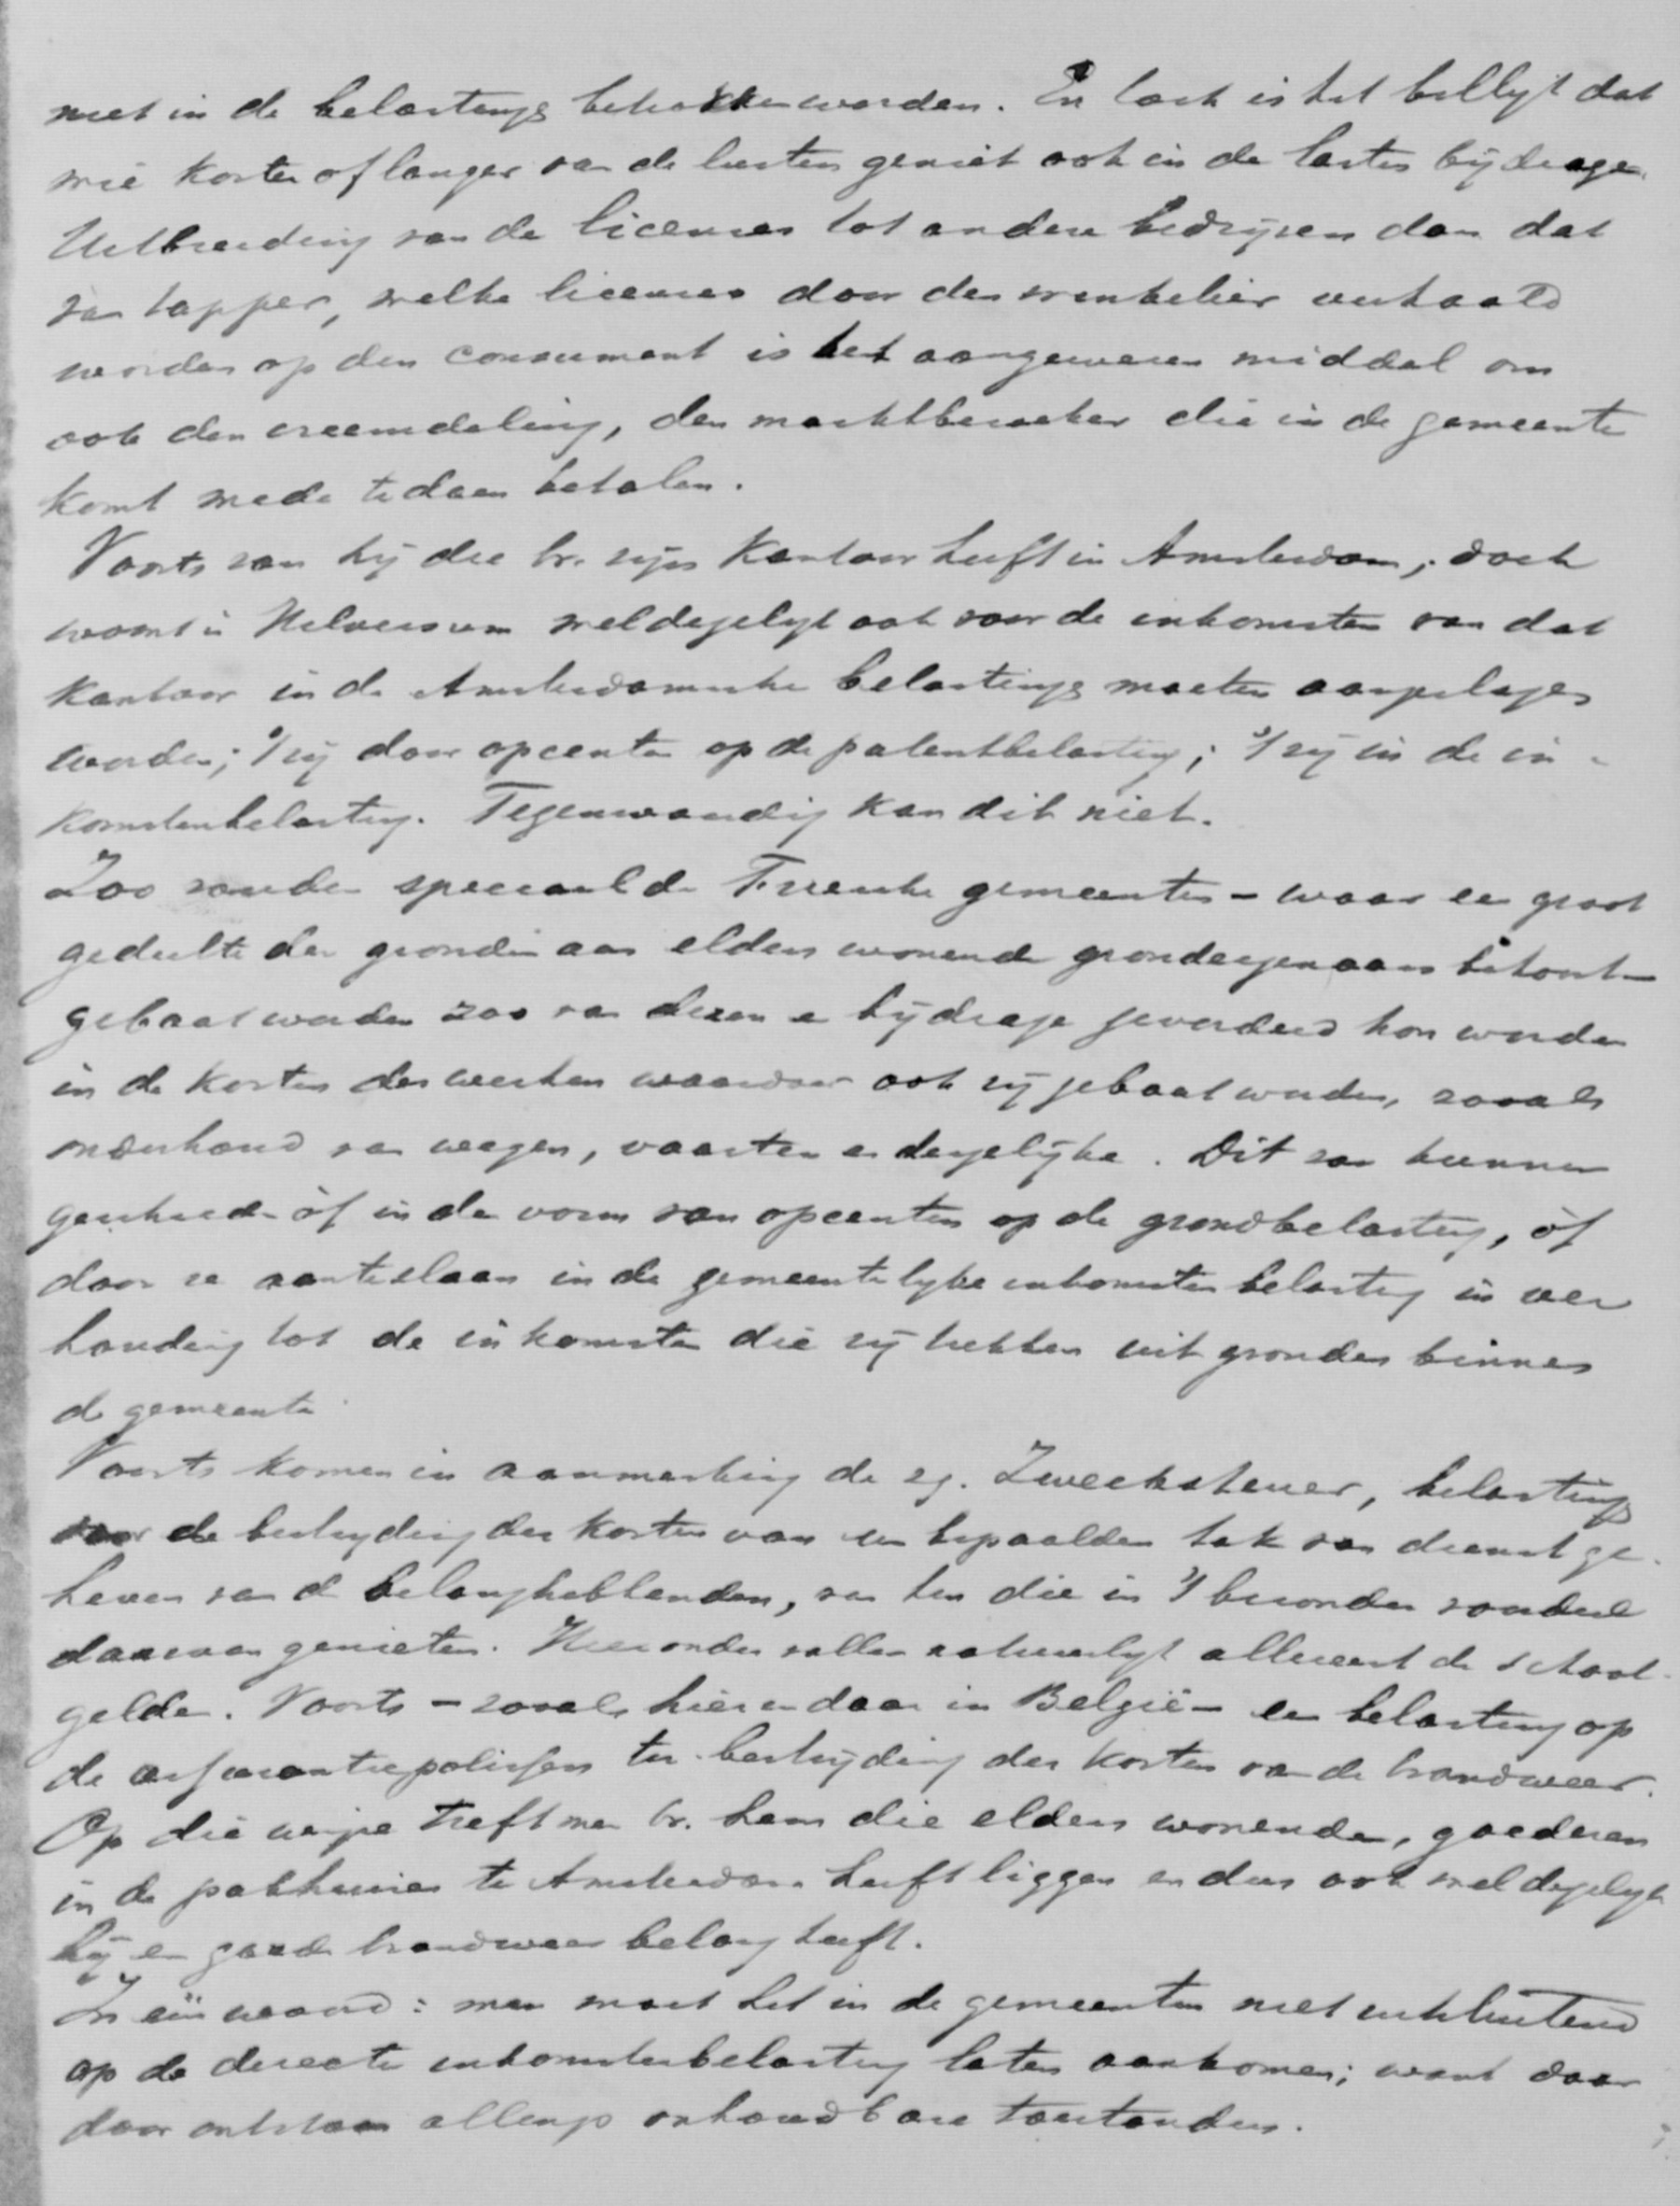 niet in de belasting betrokken worden. En toch is het billijk dat
wie korter of langer van de lusten geniet ook in de lasten bijdrage.
Uitbreiding van de licenties tot andere bedrijven dan dat
van tapper, welke licenties door den winkelier verhaald
worden op den consument is het aangewezen middel om
ook den vreemdeling, den marktbezoeker die in de gemeente
komt mede te doen betalen.
Voorts zou hij die bv. zijn kantoor heeft in Amsterdam, doch
woont in Hilversum weldegelijk ook voor de inkomsten van dat
kantoor in de Amsterdamsche belasting moeten aangeslagen
worden; 't zij door opcenten op de patentbelasting; 't zij in de in-
komstenbelasting. Tegenwoordig kan dit niet.
Zoo zouden speciaal de Friesche gemeenten - waar een groot
gedeelte der gronden aan elders wonende grondeigenaars behoort -
gebaat worden zoo van dezen een bijdrage gevorderd kon worden
in de kosten der werken waardoor ook zij gebaat worden, zooals
onderhoud van wegen, vaarten en dergelijke. Dit zou kunnen
geschieden òf in den vorm van opcenten op de grondbelasting, òf
door ze aan te slaan in de gemeentelijke inkomstenbelasting in ver
houding tot de inkomsten die zij trekken uit gronden binnen
de gemeente
Voorts komen in aanmerking de zg. Zwecksteuer, belasting
voor de bestrijding der kosten van een bepaalden tak van dienst ge-
heven van de belanghebbenden, van hen die in 't bijzonder voordeel
daarvan genieten. Hieronder vallen natuurlijk allereerst de school-
gelden. Voorts - zooals hier en daar in België - een belasting op
de assurantiepolissen ter bestrijding der kosten van de brandweer.
Op die wijze treft men bv. hem die elders wonende, goederen
in de pakhuizen te Amsterdam heeft liggen en dus ook weldegelijk
bij een goede brandweer belang heeft.
In één woord: men moet het in de gemeenten niet uitsluitend
op de directe inkomstenbelasting laten aankomen; want daar
door ontstaan allengs onhoudbare toestanden.